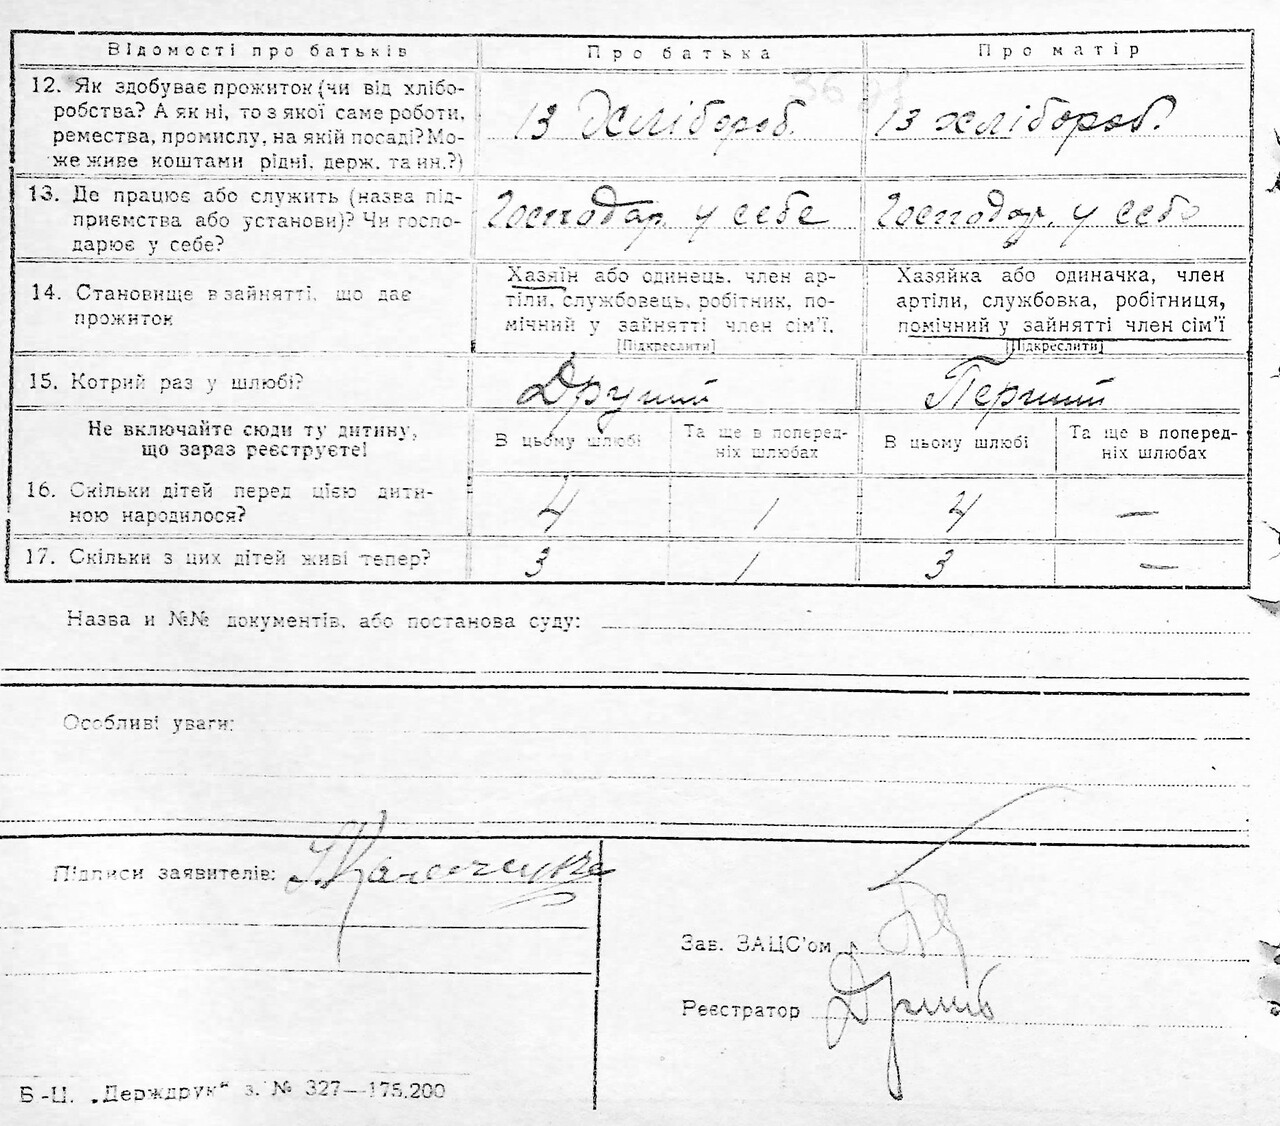 Відомості про батьків Про батька Про матір
12. Як здобуває прожиток (чи від хлібо-
робства? А як ні, то з якої саме роботи,
ремества, промислу, на якій посаді? Мо-
же живе коштами рідні, держ. та ин.?)
Із хлібороб. Із хлібороб.
13. Де працює або служить (назва під-
приємства або установи)? Чи госпо-
дарює у себе?
Господар. у себе Господар. у себе
14. Становище в зайнятті, що дає
прожиток
Хазяїн або одинець, член ар-
тіли, службовець, робітник, по-
мічний у зайнятті член сім'ї.
[Підкреслити]
Хазяйка або одиначка, член
артіли, службовка, робітниця,
помічний у зайнятті член сім'ї
[Підкреслити]
15. Котрий раз у шлюбі? Другий Перший
Не включайте сюди ту дитину,
що зараз реєструєте!
В цьому шлюбі Та ще в поперед-
ніх шлюбах
В цьому шлюбі Та ще в поперед-
ніх шлюбах
16. Скільки дітей перед цією дити-
ною народилося?
4 1 4 —
17. Скільки з цих дітей живі тепер? 3 1 3 —
Назва и №№ документів, або постанова суду:
Особливі уваги:
Підписи заявителів:
Зав. ЗАЦС'ом
Реєстратор
Б-Ц. „Держдрук" з. № 327—175.200